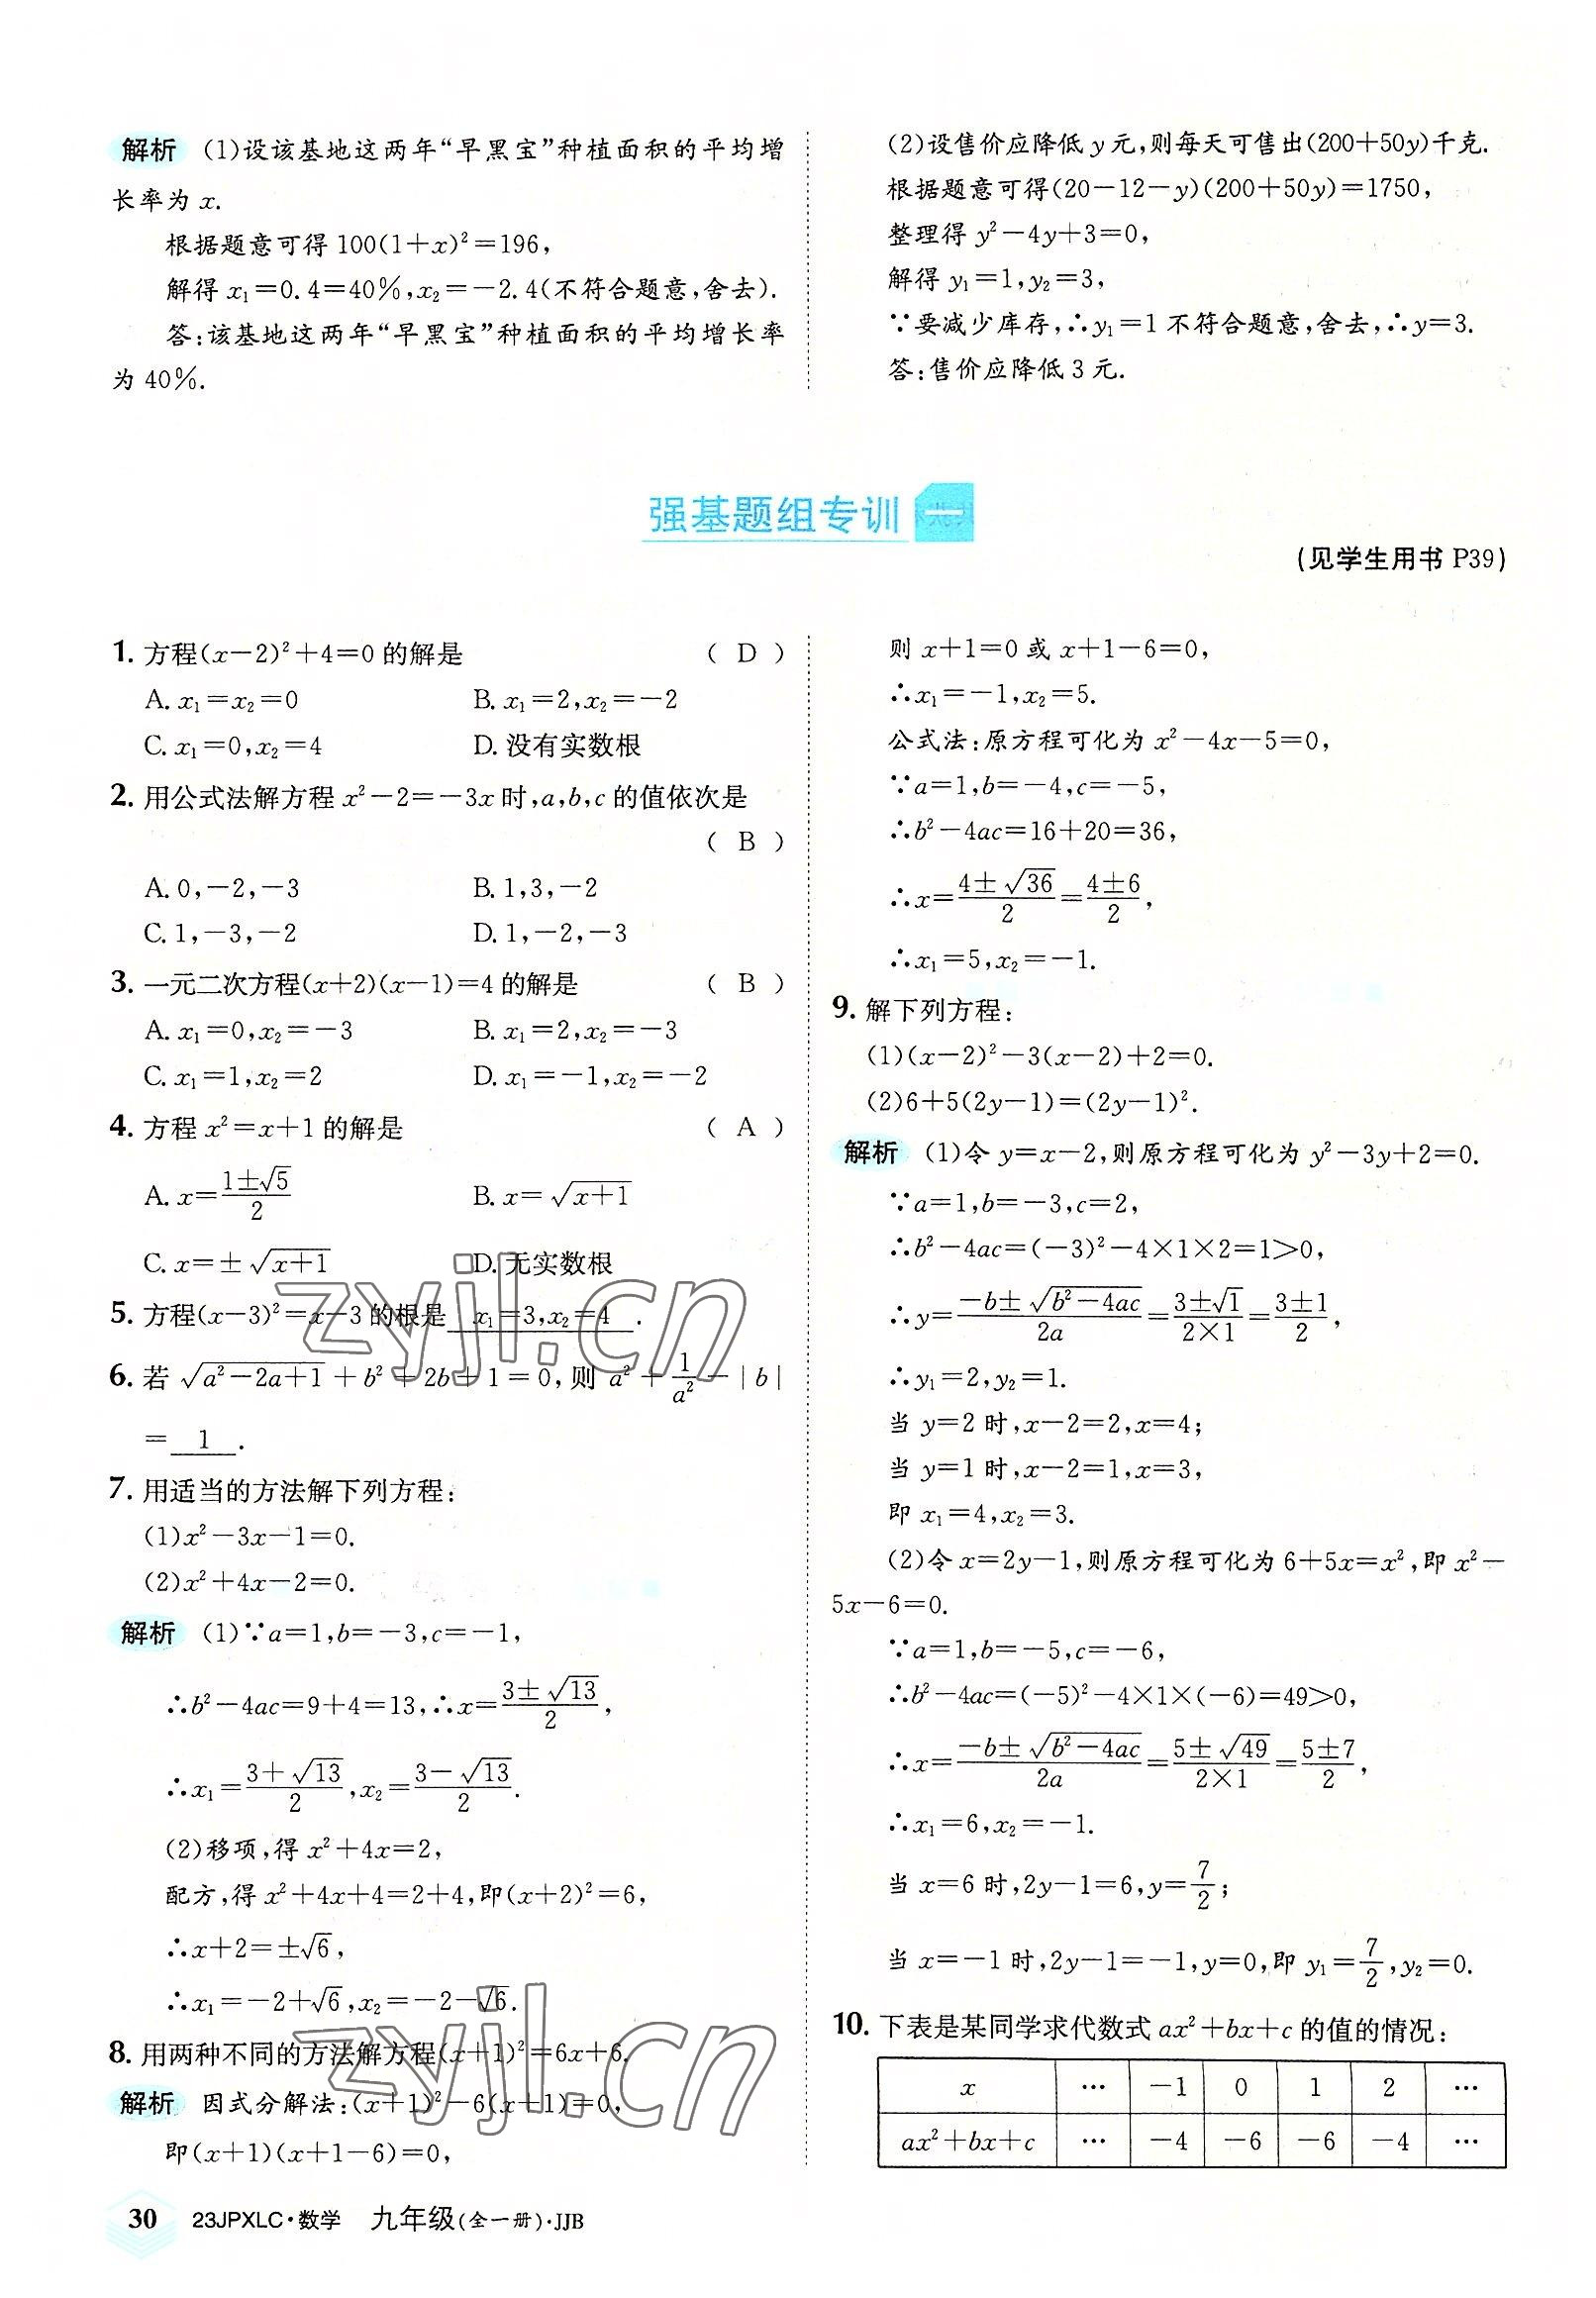 解析 (1)设该基地这两年“早黑宝”种植面积的平均增
长率为 x.
根据题意可得 100(1+x)²=196,
解得 x₁=0.4=40%,x₂=-2.4(不符合题意,舍去).
答:该基地这两年“早黑宝”种植面积的平均增长率
为 40%.
(2)设售价应降低 y 元,则每天可售出(200+50y)千克.
根据题意可得(20-12-y)(200+50y)=1750,
整理得 y²-4y+3=0,
解得 y₁=1,y₂=3,
∵要减少库存,∴y₁=1 不符合题意,舍去,∴y=3.
答:售价应降低 3 元.
强基题组专训 一
(见学生用书 P39)
1. 方程(x-2)²+4=0 的解是 ( D )
A. x₁=x₂=0 B. x₁=2,x₂=-2
C. x₁=0,x₂=4 D. 没有实数根
2. 用公式法解方程 x²-2=-3x 时,a,b,c 的值依次是
( B )
A. 0,-2,-3 B. 1,3,-2
C. 1,-3,-2 D. 1,-2,-3
3. 一元二次方程(x+2)(x-1)=4 的解是 ( B )
A. x₁=0,x₂=-3 B. x₁=2,x₂=-3
C. x₁=1,x₂=2 D. x₁=-1,x₂=-2
4. 方程 x²=x+1 的解是 ( A )
A. x=(1±√5)/2 B. x=√(x+1)
C. x=±√(x+1) D. 无实数根
5. 方程(x-3)²=x-3 的根是 x₁=3,x₂=4 .
6. 若 √(a²-2a+1)+b²+2b+1=0,则 a²+1/a²-|b|
= 1 .
7. 用适当的方法解下列方程:
(1)x²-3x-1=0.
(2)x²+4x-2=0.
解析 (1)∵a=1,b=-3,c=-1,
∴b²-4ac=9+4=13,∴x=(3±√13)/2,
∴x₁=(3+√13)/2,x₂=(3-√13)/2.
(2)移项,得 x²+4x=2,
配方,得 x²+4x+4=2+4,即(x+2)²=6,
∴x+2=±√6,
∴x₁=-2+√6,x₂=-2-√6.
8. 用两种不同的方法解方程(x+1)²=6x+6.
解析 因式分解法:(x+1)²-6(x+1)=0,
即(x+1)(x+1-6)=0,
则 x+1=0 或 x+1-6=0,
∴x₁=-1,x₂=5.
公式法:原方程可化为 x²-4x-5=0,
∵a=1,b=-4,c=-5,
∴b²-4ac=16+20=36,
∴x=(4±√36)/2=(4±6)/2,
∴x₁=5,x₂=-1.
9. 解下列方程:
(1)(x-2)²-3(x-2)+2=0.
(2)6+5(2y-1)=(2y-1)².
解析 (1)令 y=x-2,则原方程可化为 y²-3y+2=0.
∵a=1,b=-3,c=2,
∴b²-4ac=(-3)²-4×1×2=1>0,
∴y=(-b±√(b²-4ac))/2a=(3±√1)/(2×1)=(3±1)/2,
∴y₁=2,y₂=1.
当 y=2 时,x-2=2,x=4;
当 y=1 时,x-2=1,x=3,
即 x₁=4,x₂=3.
(2)令 x=2y-1,则原方程可化为 6+5x=x²,即 x²-
5x-6=0.
∵a=1,b=-5,c=-6,
∴b²-4ac=(-5)²-4×1×(-6)=49>0,
∴x=(-b±√(b²-4ac))/2a=(5±√49)/(2×1)=(5±7)/2,
∴x₁=6,x₂=-1.
当 x=6 时,2y-1=6,y=7/2;
当 x=-1 时,2y-1=-1,y=0,即 y₁=7/2,y₂=0.
10. 下表是某同学求代数式 ax²+bx+c 的值的情况:
x … -1 0 1 2 …
ax²+bx+c … -4 -6 -6 -4 …
30 23JPXLC·数学 九年级(全一册)·JJB
zyjl.cn
zyjl.cn